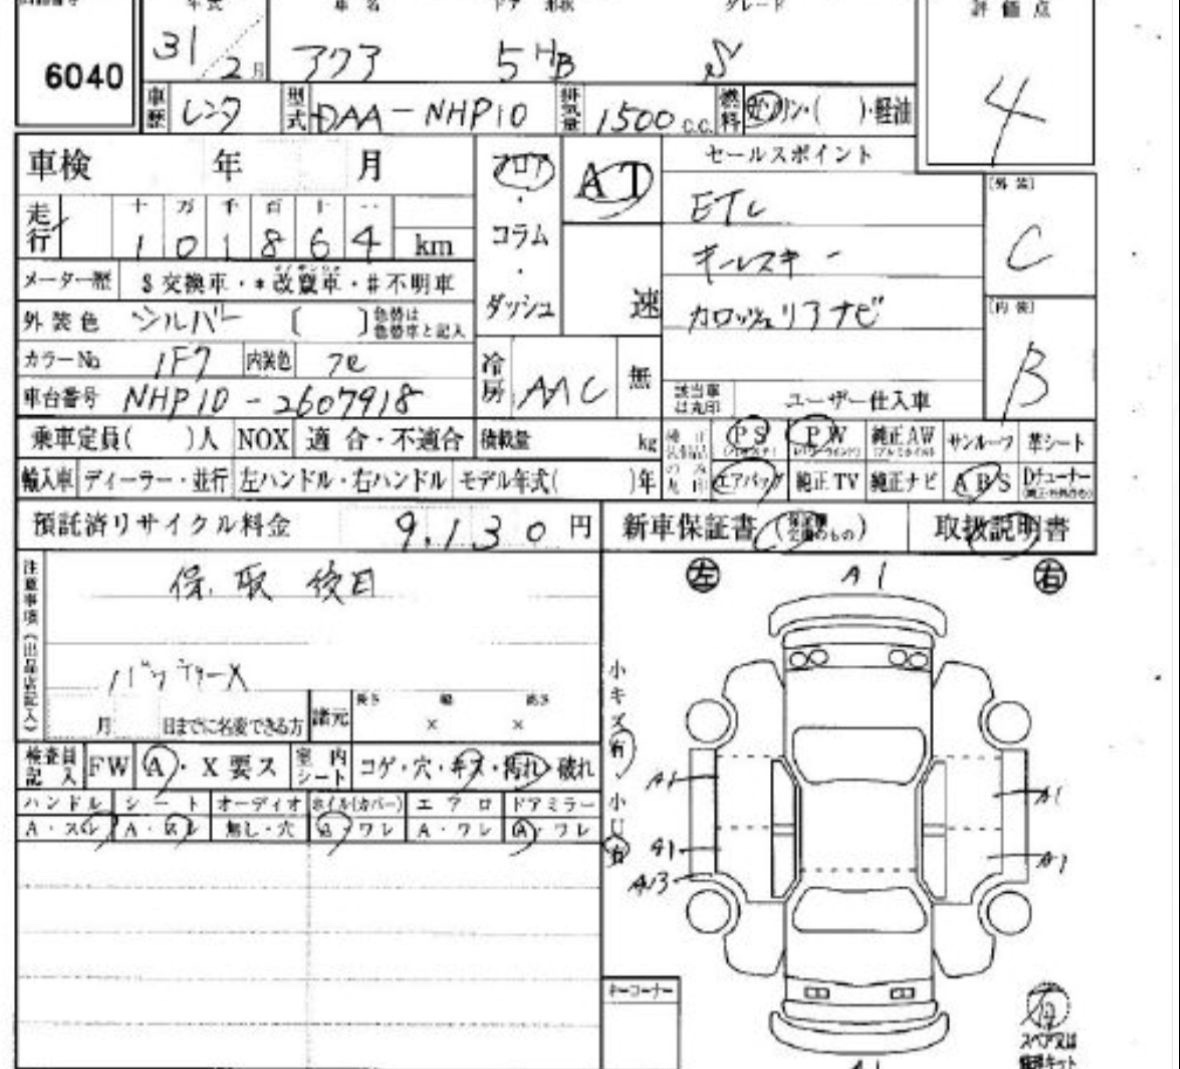 年式 車名 ドア 形状 グレード 評価点
6040 31/2月 アクア 5 HB S 4
車歴 レンタ 型式 DAA-NHP10 排気量 1500 c.c. 燃料 ガソリン・( )・軽油
車検 年 月 フロア AT セールスポイント
[外装] C
ETC
走行 十 万 千 百 十 一
101864 km
・コラム・ダッシュ 速
キーレスキー
メーター歴 $交換車・*改竄車・#不明車
カロッツェリアナビ
[内装] B
外装色 シルバー [ ] 色替は色替車と記入
カラーNo 1F7 内装色
冷房 AAC 無
車台番号 NHP10-2607918
該当車は丸印 ユーザー仕入車
乗車定員( )人 NOX 適合・不適合 積載量 kg
PS PW 純正AW サンルーフ 革シート
輸入車 ディーラー・並行 左ハンドル・右ハンドル モデル年式( )年
エアバッグ 純正TV 純正ナビ ABS Dチューナー
預託済リサイクル料金 9,130円 新車保証書 取扱説明書
注意事項(出品店記入)
保、取 後日
左 A1 右
小キズ有・小U有
月 日までに名変できる方 諸元 長さ × 幅 × 高さ
検査員記入 FW A・X要ス 室内シート コゲ・穴・キズ・汚れ・破れ
ハンドル シート オーディオ ホイル(カバー) エアロ ドアミラー
A・スレ A・スレ 無し・穴 A・ワレ A・ワレ A・ワレ
A1 A1
A1 A1
A13
キーコーナー
有
スペア又は
修理キット
A1